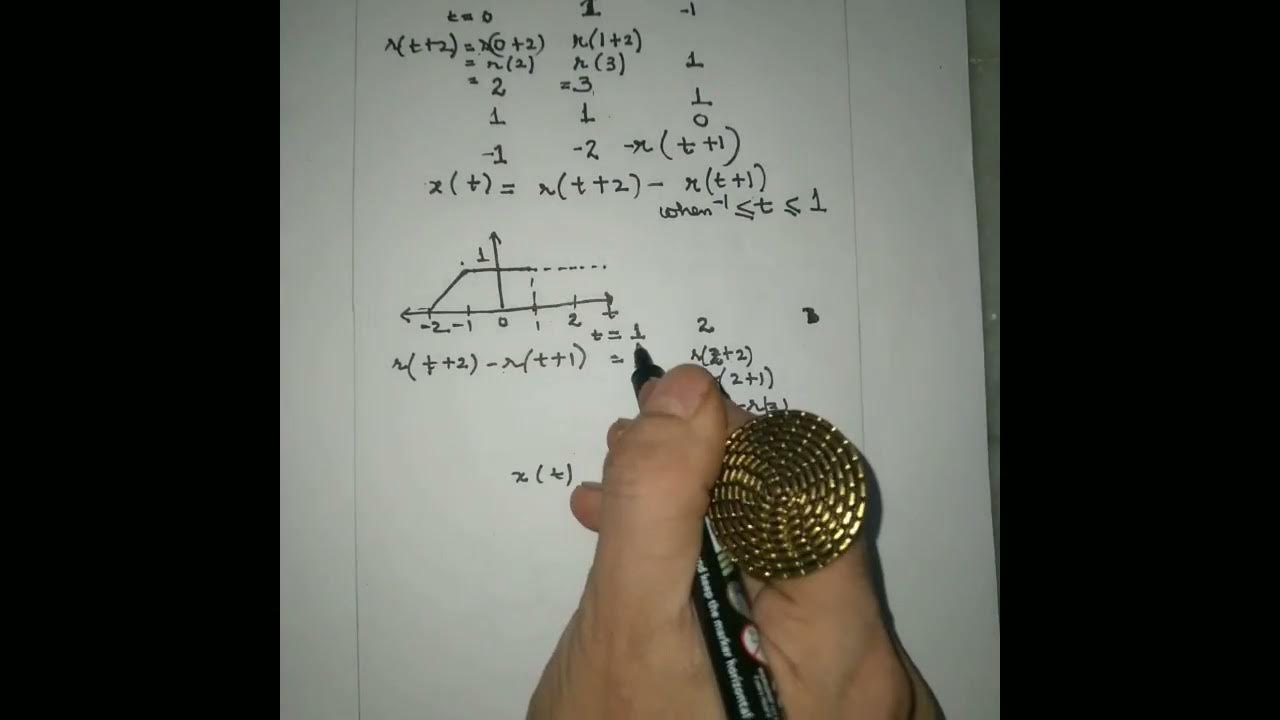 t = 0 1 -1
r(t+2) = r(0+2) r(1+2)
= r(2) r(3) 1
= 2 =3 1
1 1 0
-1 -2 -r(t+1)
x(t) = r(t+2) - r(t+1)
when -1 ≤ t ≤ 1
1
-2 -1 0 1 2 t
t = 1 2 3
r(t+2) - r(t+1) = r(2+2)
(2+1)
-r(3)
x(t)
keep the marker horizontal